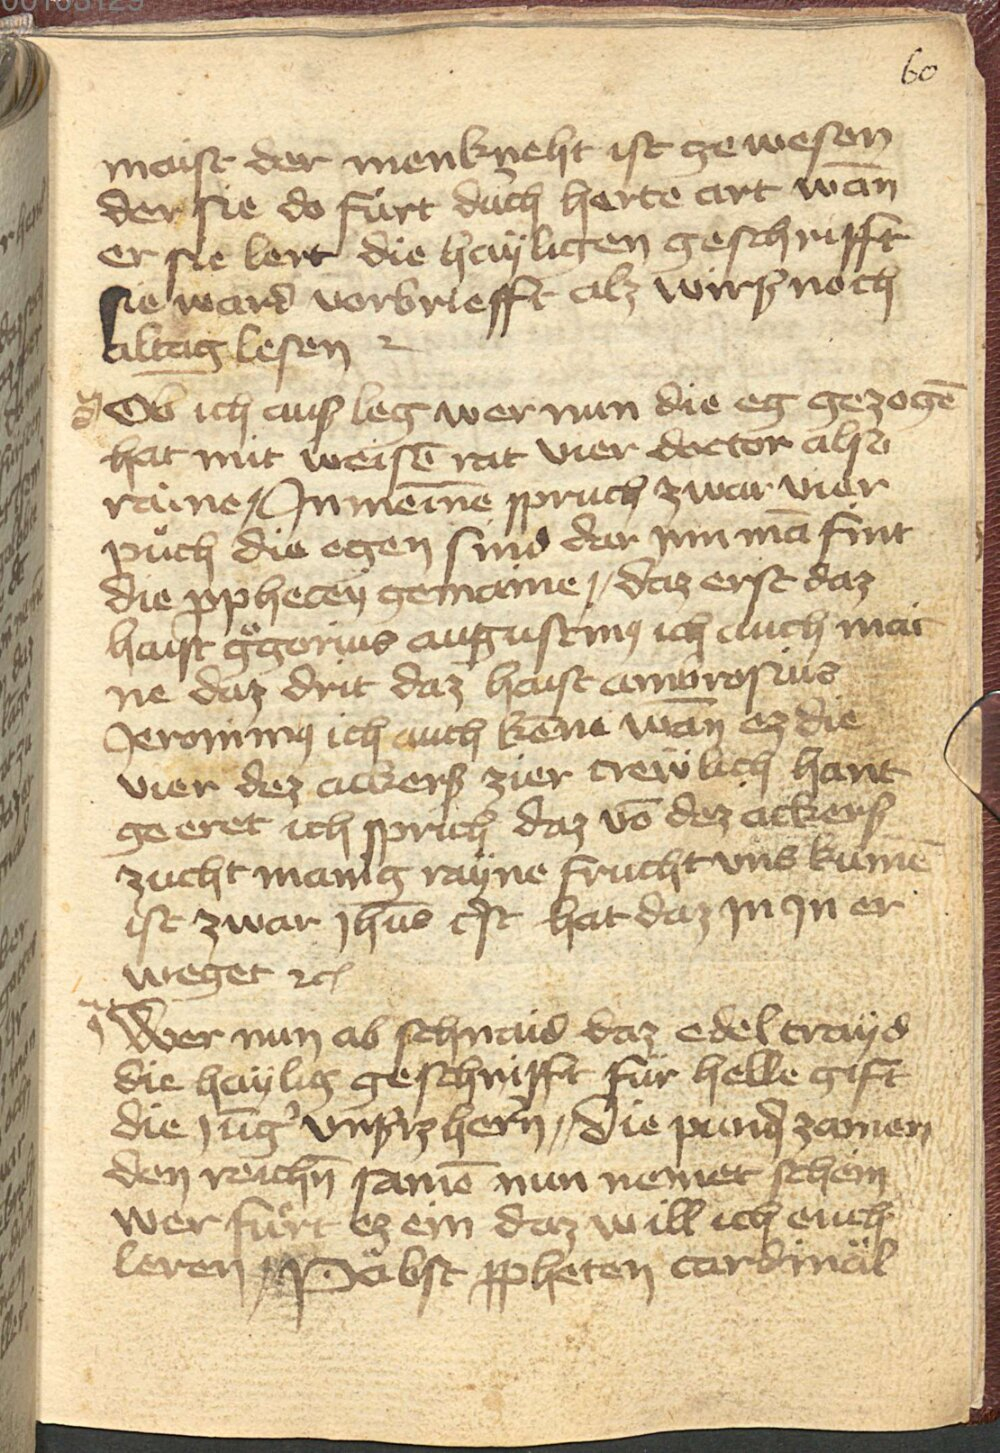 60
maist der menkneht ist gewesen
der sie do fürt durch herte art wān
er sie lert die haÿligen geschrifft
sie ward vorbriefft alz wirß noch
altag lesen
Ob ich auß leg wer nun die eg gezogē
hat mit weisē rat vier doctor also
raine / In meīnē spruch zwar vier
pu̇ch die egen sind dar jnn mā fint
die ppheceÿ gemaine // daz erst daz
haist g̊gorius augustinꝰ ich auch mai
ne daz drit daz haist ambrosius
Jeronimꝰ ich auch kēne wān ez die
vier dez ackerß zier trewlich hant
geeret ich sprich daz vō dez ackerß
zucht manig raÿne frucht vns kumē
ist zwar jhūs crist hat daz jn jn er
weget ꝛc
Wer nun ab schnaid daz edel trayd
die haÿlig geschrifft für helle gift
die jūg' vnßrz hern // die pund zamen
den reichn̄ samē nun nemet schein
wer fürt ez ein daz will ich euch
leren // Päbst ppheten cardinäl